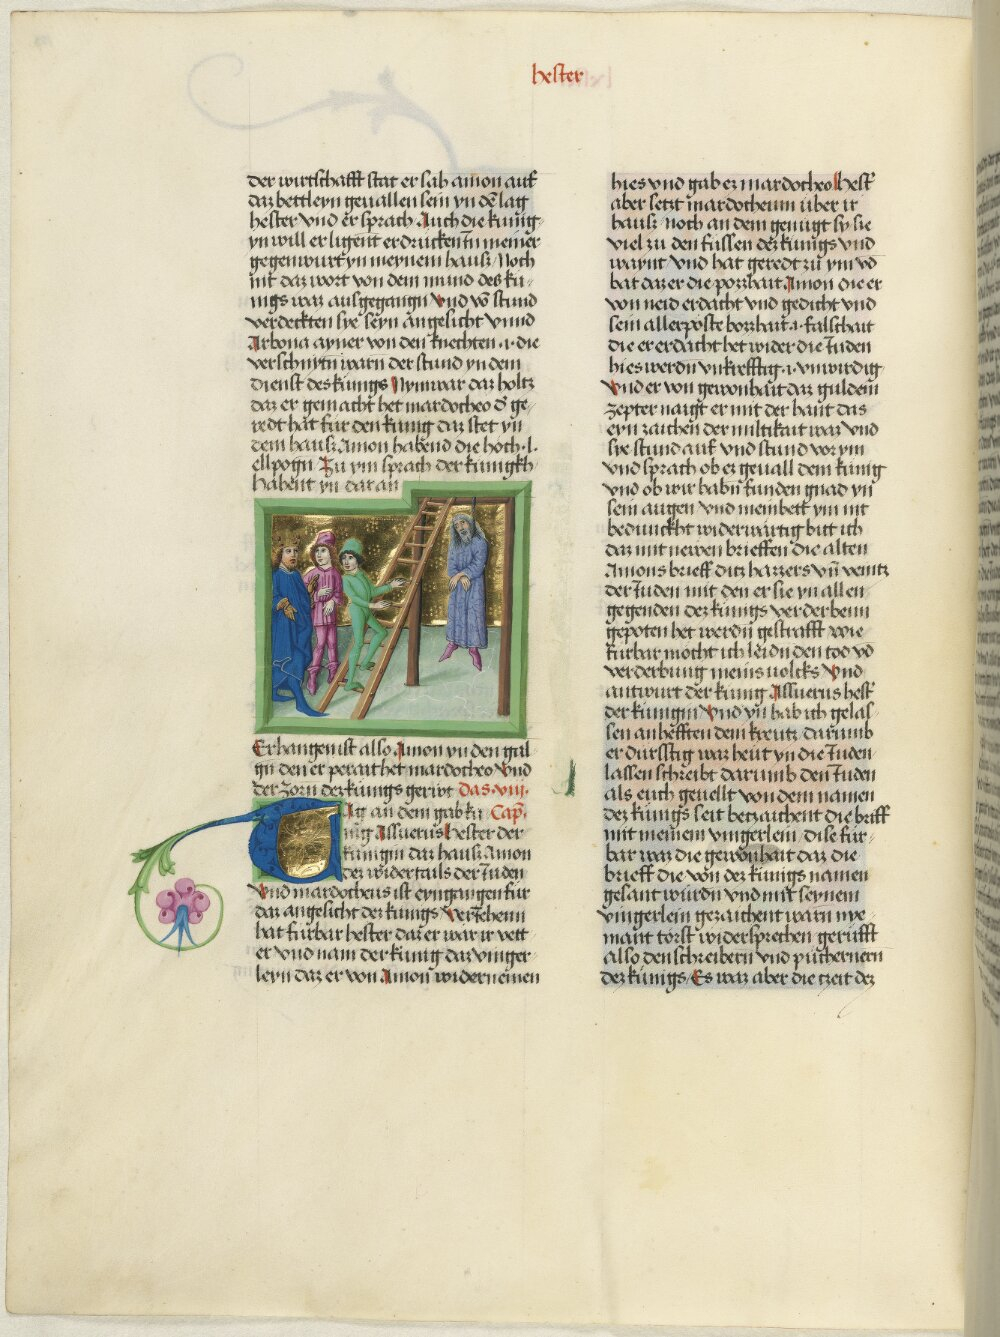 hester
der wirtschafft stat er sah amon auf
daz bettleyn geuallen sein yn dē lag
hester vnd er sprach Auch die kunig
yn will er ligent erdrucken īn meiner
gegenwurt yn meynem hausz Noch
nit daz wort von dem mund des ku
nigs waz ausgegangn vnd vō stund
verdeckten sye seyn angesicht vnnd
Arbona ayner von den knechten .i. die
verschnytn warn der stund yn dem
dienst des kunigs Nym war daz holtz
daz er gemacht het mardotheo d ge
redt hat fur den kunig daz stet yn
dem hausz Amon habend die hoch .l.
ellpogn Zu ym sprach der kunig
habent yn dar an
Erhangen ist also Amon yn den gal
gn den er perait het mardotheo vnd
der zorn dez kunigs gerwt das .viij.
Ag an dem gab ku Cap.
nig Assuerus hester der
kunigin daz hausz Amon
dez widertails der Juden
vnd mardotheus ist eyngangen fur
daz angesicht dez kunigs Verzehenn
hat furbar hester daz er war ir vett
er vnd nam der kunig daz vinger
leyn daz er von Amon widernemen
hies vnd gab ez mardotheo hest
aber setzt mardotheum über ir
hausz noch an dem genugt sy sie
viel zu den fussen dez kunigs vnd
waynt vnd hat geredt zu ym vō
bat daz er die pozhait Amon die er
von neid erdacht vnd gedicht vnd
sein allerposte bozhait .i. falschait
die er erdacht het wider die Juden
hies werdn vnkrefftig .i. vnwirdig
vnd er von gewonhait daz guldein
zepter naigt er mit der hant das
eyn zaichen der miltikait waz vnd
sye stund auf vnd stund vor ym
vnd sprach ob ez geuall dem kunig
vnd ob wir habn funden gnad yn
sein augen vnd mein bett ym nit
beduncht widerwartig bitt ich
daz mit newen brieffen die alten
Amons brieff ditz hazzers vn veintz
der Juden mit den er sie yn allen
gegenden dez kunigs verderbenn
gepoten het werdn gestrafft wie
furbar mocht ich leidn den tod vō
verderbung meins uolcks Vnd
antwurt der kunig Assuerus hest
der kunigin Vnd yn hab ich gelas
sen anhefften dem kreutz darumb
er durfftig waz hent yn die Juden
lassen schreibt darumb den Juden
als euch geuellt von dem namen
dez kunigs seit betzaichent die briff
mit meinem vingerlein dise fur
bar waz die gewonhait daz die
brieff die von dez kunigs namen
gesant wurdn vnd mit seynem
vingerlein gezaichent warn nye
mant torst widersprechen gerufft
also den schreibern vnd püchernern
dez kunigs Es waz aber die tzeit dez